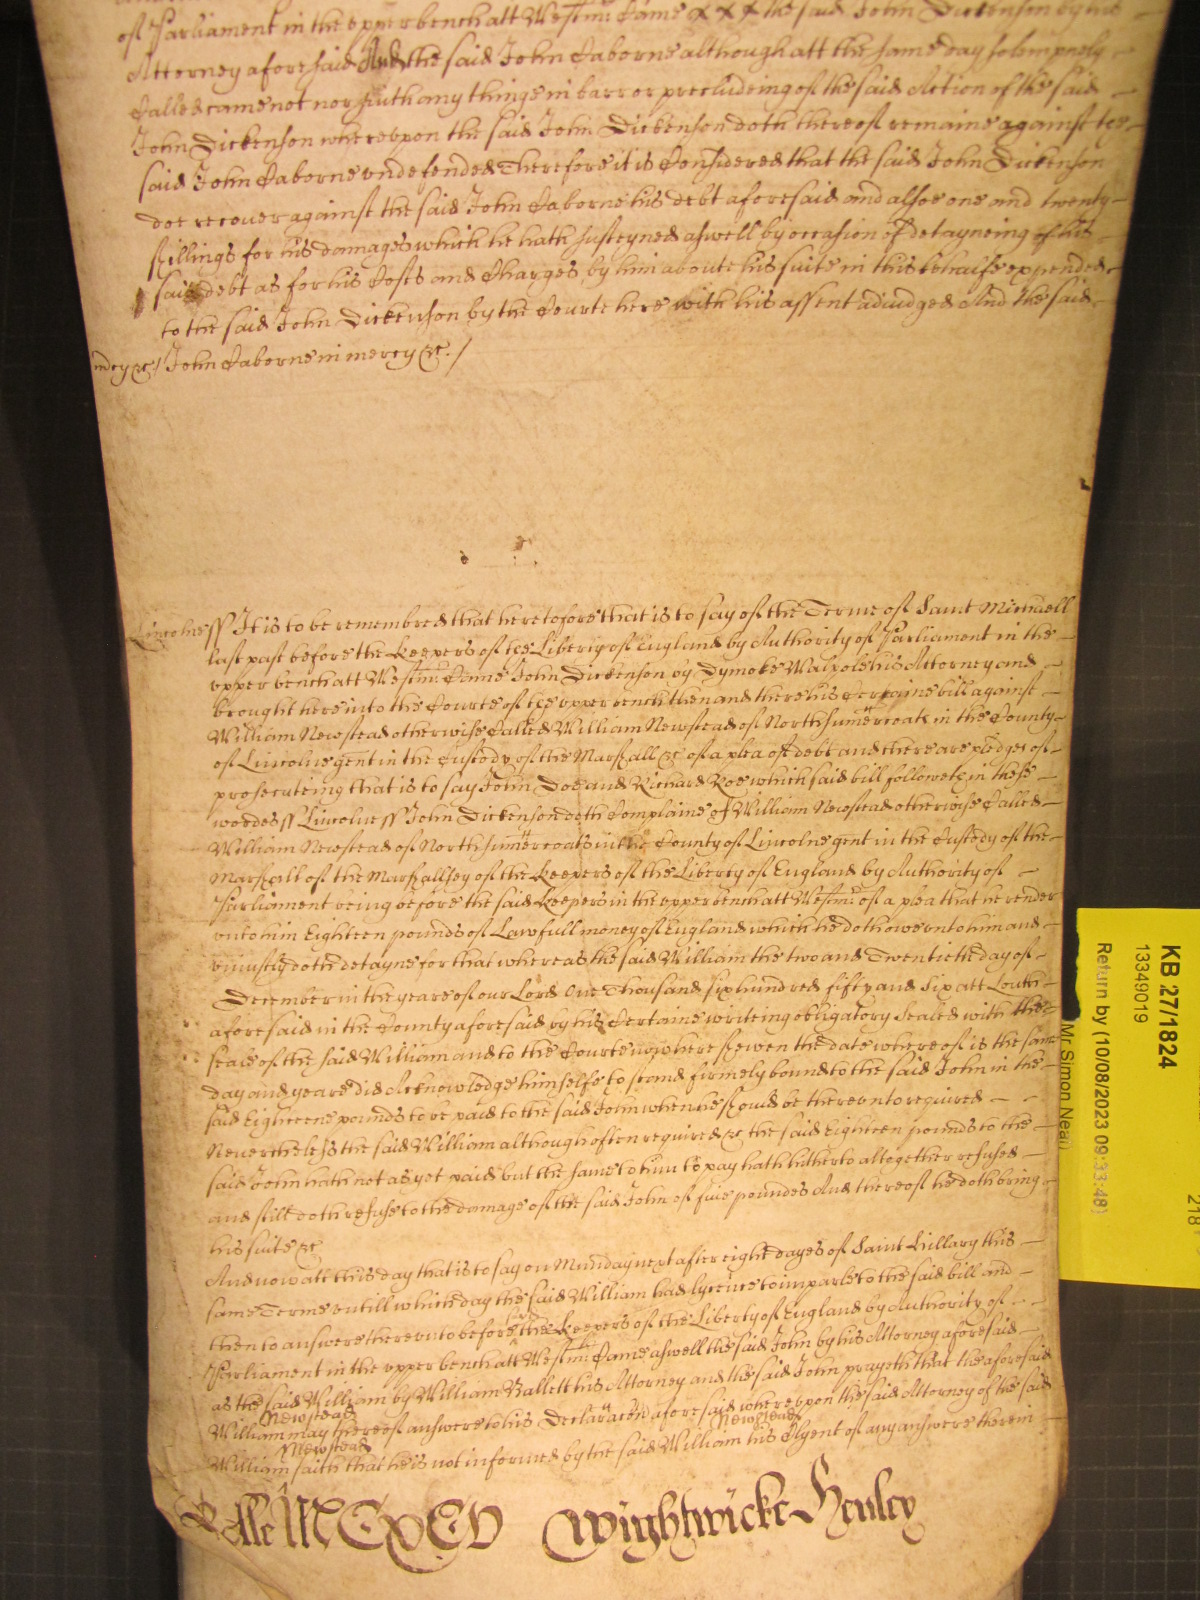 of Parliament in the upper bench att Westmr Came x x x the said John Dickenson by his
Attorney aforesaid And the said John Caborne although att the same day solempnely
Called came not nor suth any things in barr or precludeing of the said Action of the said
John Dickenson whereupon the said John Dickenson doth thereof remaine against the
said John Caborne undefended Therefore it is Considered that the said John Dickenson
doe recover against the said John Caborne his debt aforesaid and alsoe one and twenty
skillings for his damages which he hath susteyned aswell by occasion of detayneing of his
said debt as for his Costs and Charges by him aboute his suite in this behalfe expended
to the said John Dickenson by the Courte here with his assent adiudged And the said
mcy &c / John Caborne in mercy &c. /
Lincolne ss It is to be remembred that heretofore that is to say of the Terme of Saint Michaell
last past before the Keepers of the Liberty of England by Authority of Parliament in the
upper bench att Westmr Came John Dickenson by Dymoke Walpole his Attorney and
brought here into the Courte of the upper bench then and there his Certaine bill against
William Newstead otherwise Called William Newstead of North Sumercoats in the County
of Lincolne gent in the Custody of the Marshall &c of a plea of debt and there are pledges of
prosecuteing that is to say John Doe and Richard Roe which said bill followeth in these
wordes ss Lincolne ss John Dickenson doth Complaine of William Newstead otherwise Called
William Newstead of North Sumercoats in the County of Lincolne gent in the Custody of the
Marshall of the Marshallsey of the Keepers of the Liberty of England by Authority of
Parliament being before the said Keepers in the upper bench att Westmr of a plea that he render
unto him Eighteen pounds of Lawfull money of England which he doth owe unto him and
uniustly doth detayne for that whereas the said William the two and Twentieth day of
December in the yeare of our Lord One Thousand six hundred fifty and Six att Louth
aforesaid in the County aforesaid by his Certaine writeing obligatory Sealed with the
seale of the said William and to the Courte now here shewen the date whereof is the same
day and yeare did Acknowledge himselfe to stand firmely bound to the said John in the
said Eighteene pounds to be paid to the said John when he should be thereunto required
Neverthelesse the said William although often required &c the said Eighteen pounds to the
said John hath not as yet paid but the same to him to pay hath hitherto altogether refused
and still doth refuse to the damage of the said John of five poundes And thereof he doth bring
his suite &c
And now att this day that is to say on Munday next after eight dayes of Saint Hillary this
same Terme untill which day the said William had lycence to imparle to the said bill and
then to answere thereunto before the Keepers of the Liberty of England by Authority of
Parliament in the upper bench att Westmr Came aswell the said John by his Attorney aforesaid
as the said William by William Rallett his Attorney and the said John prayeth that the aforesaid
William Newstead may thereof answere to his Declaracon aforesaid whereupon the said Attorney of the said
William Newstead saith that he is not informed by the said William Newstead his Clyent of any answere therein
Rolle MCXCV Wightwicke Henley
KB 27/1824
13349019
Return by (10/08/2023 09:33:48)
Mr Simon Neal
218